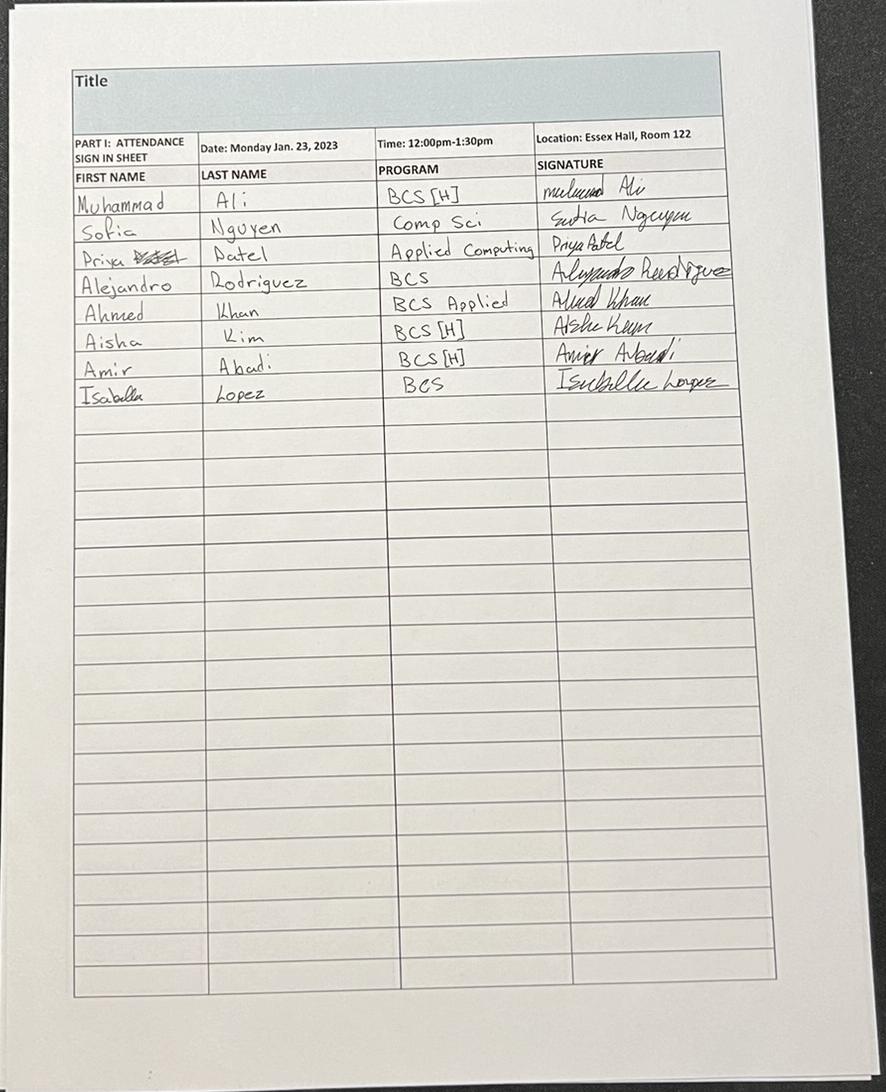 Title
PART I: ATTENDANCE SIGN IN SHEET Date: Monday Jan. 23, 2023 Time: 12:00pm-1:30pm Location: Essex Hall, Room 122
FIRST NAME LAST NAME PROGRAM SIGNATURE
Muhammad Ali BCS [H] Ali
Sofia Nguyen Comp Sci Nguyen
Priya Patel Applied Computing Priya Patel
Alejandro Rodriguez BCS
Ahmed Khan BCS Applied Khan
Aisha Kim BCS [H]
Amir Abadi BCS [H] Amir
Isabella Lopez BCS